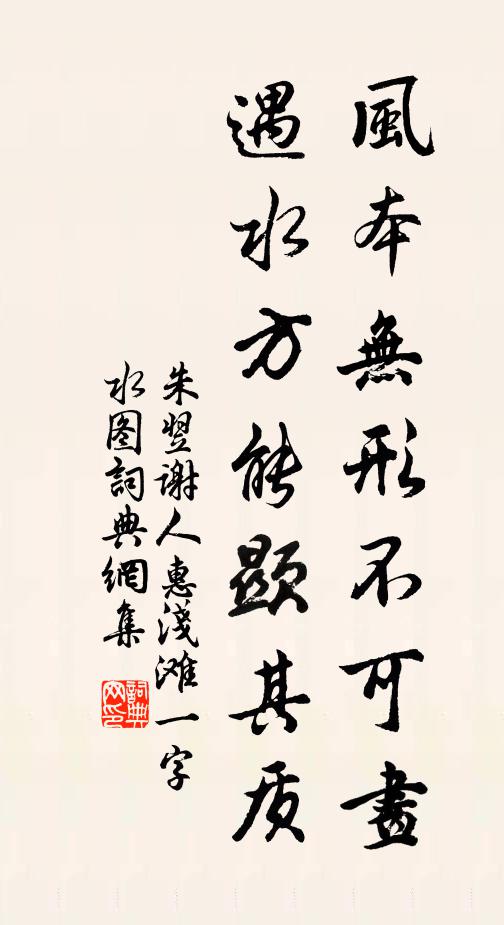 風本無形不可畫
遇水方能顯其质
朱翌谢人惠淺滩一字
水图詞典網集
詞典网印